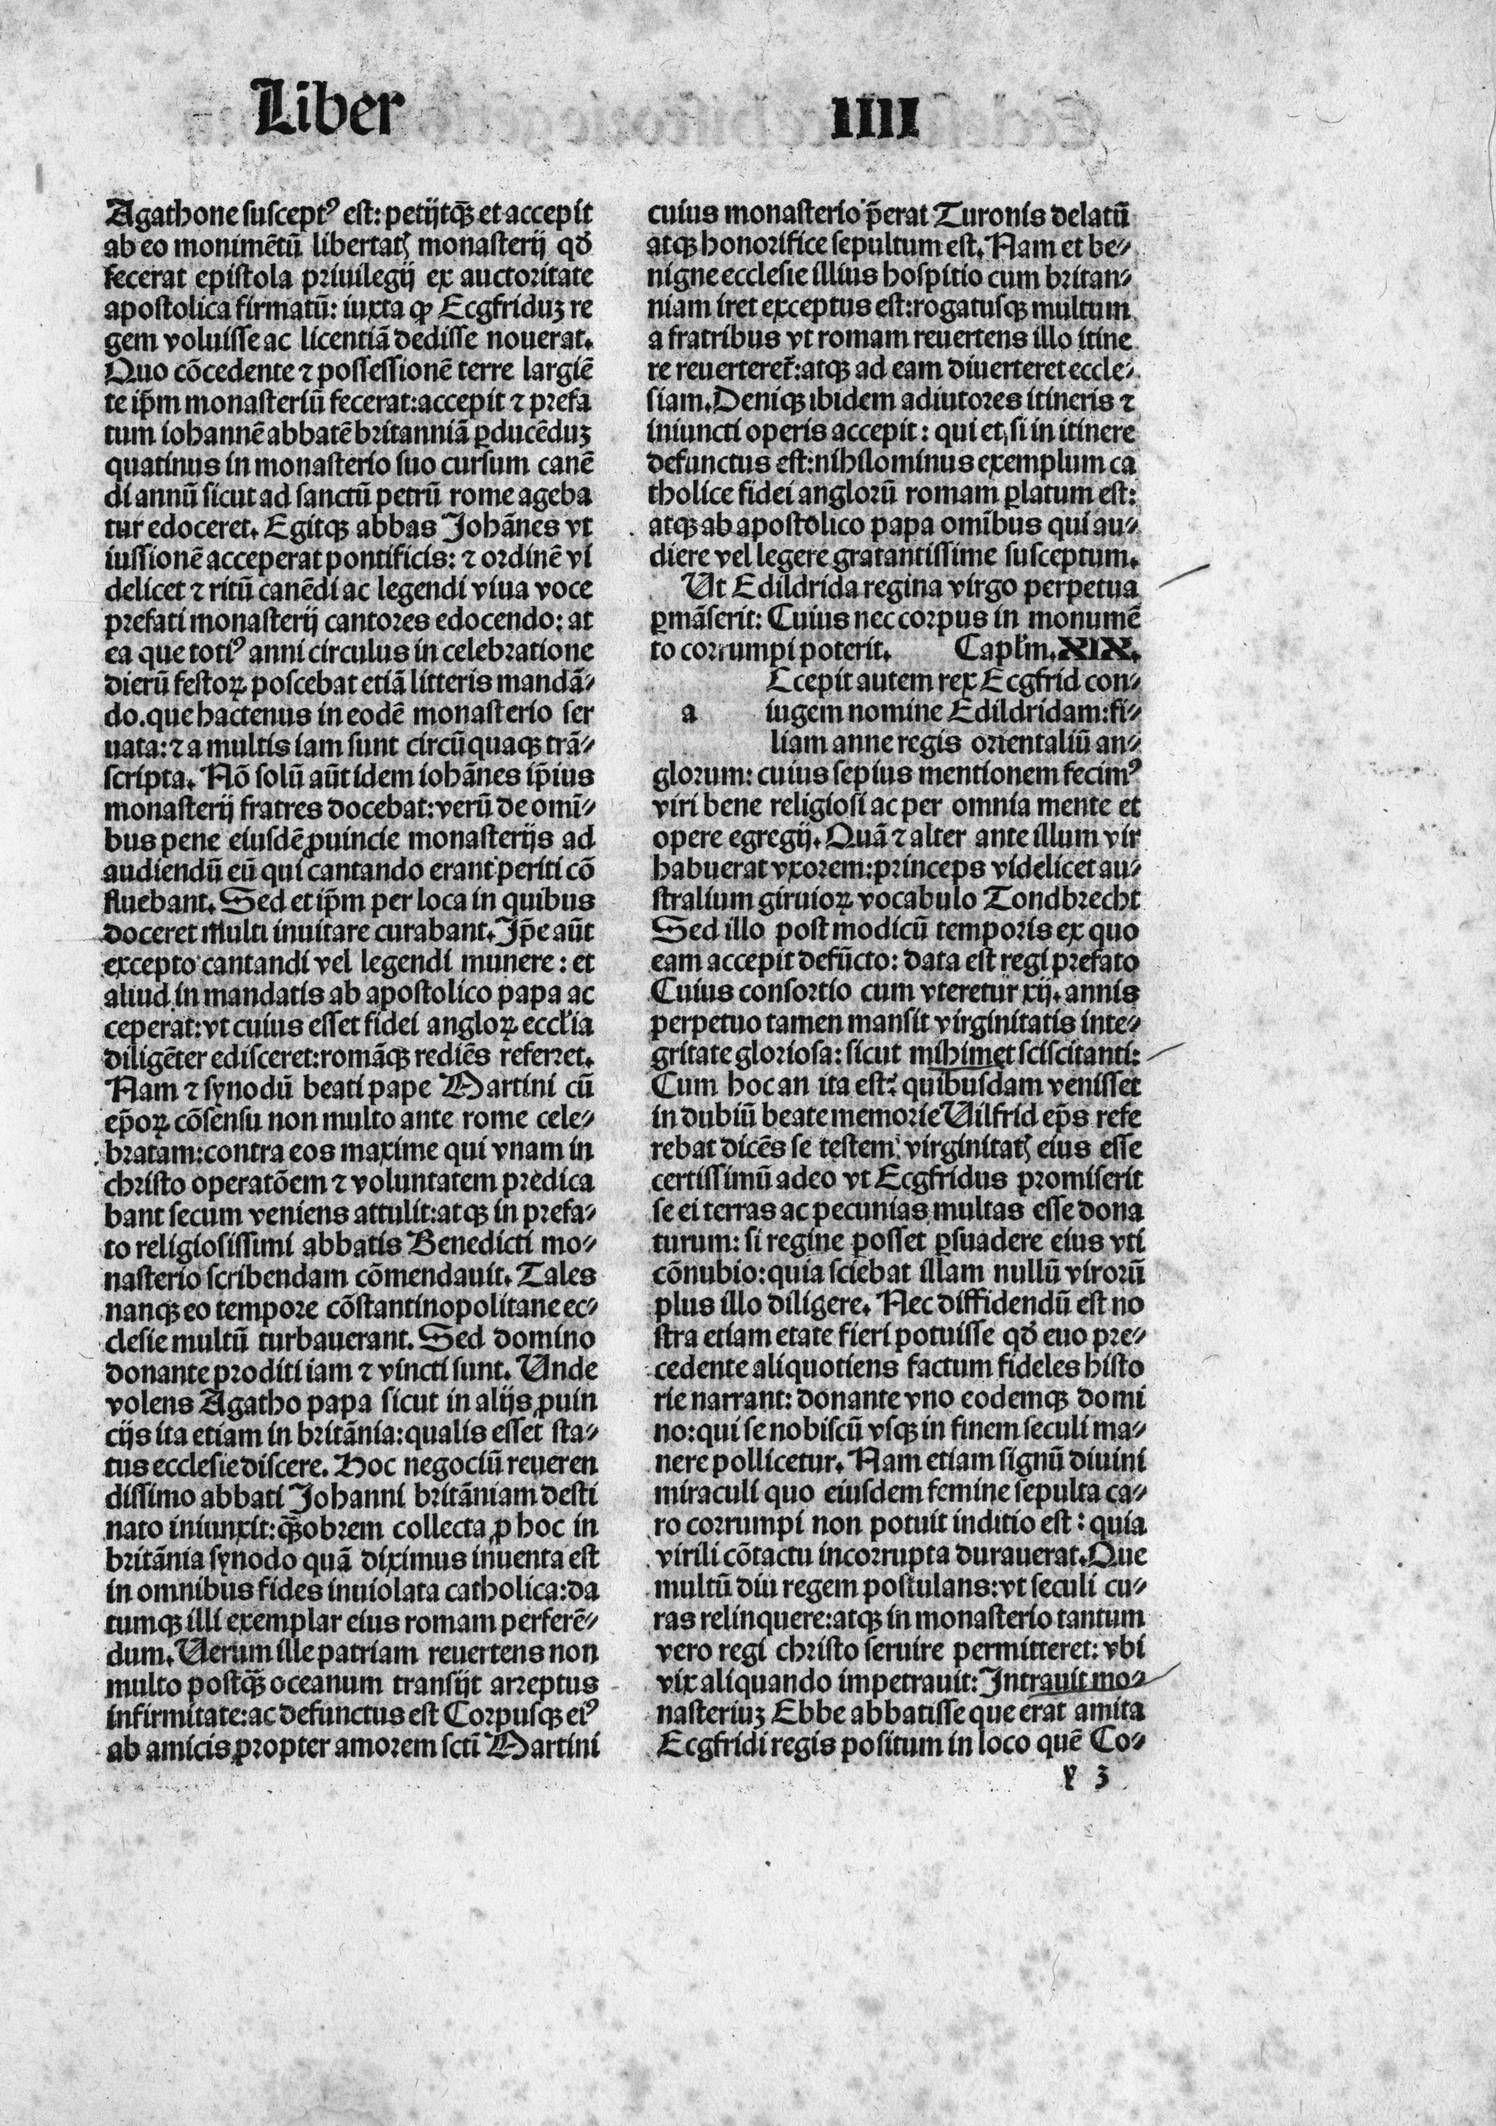 Liber IIII
Agathone suscept⁹ est: petijtq̃ et accepit
ab eo monimētū libertatꝭ monasterij qđ
fecerat epistola priuilegij ex auctoritate
apostolica firmatū: iuxta ꝙ Ecgfriduꝫ re
gem voluisse ac licentiā dedisse nouerat.
Quo cōcedente ⁊ possessionē terre largiē
te ip̄m monasteriū fecerat:accepit ⁊ prefa
tum iohannē abbatē britanniā ꝑducēduꝫ
quatinus in monasterio suo cursum canē
di annū sicut ad sanctū petrū rome ageba
tur edoceret. Egitqꝫ abbas Johānes vt
iussionē acceperat pontificis: ⁊ ordinē vi
delicet ⁊ ritū canēdi ac legendi viua voce
prefati monasterij cantores edocendo: at
ea que toti⁹ anni circulus in celebratione
dierū festoꝝ poscebat etiā litteris mandā⸗
do.que hactenus in eodē monasterio ser
uata:⁊ a multis iam sunt circūquaqꝫ trā⸗
scripta. Nō solū aūt idem iohānes ip̄ius
monasterij fratres docebat:verū de omī⸗
bus pene eiusdē ꝓuincie monasterijs ad
audiendū eū qui cantando erant periti cō
fluebant. Sed et ip̄m per loca in quibus
doceret multi inuitare curabant. Jp̄e aūt
excepto cantandi vel legendi munere: et
aliud in mandatis ab apostolico papa ac
ceperat:vt cuius esset fidei angloꝝ eccl'ia
diligēter edisceret:romāqꝫ rediēs referret.
Nam ⁊ synodū beati pape Martini cū
ep̄oꝝ cōsensu non multo ante rome cele⸗
bratam:contra eos maxime qui vnam in
christo operatōem ⁊ voluntatem predica
bant secum veniens attulit:atqꝫ in prefa⸗
to religiosissimi abbatis Benedicti mo⸗
nasterio scribendam cōmendauit. Tales
nanqꝫ eo tempore cōstantinopolitane ec⸗
clesie multū turbauerant. Sed domino
donante proditi iam ⁊ vincti sunt. Unde
volens Agatho papa sicut in alijs ꝓuin
cijs ita etiam in britānia:qualis esset sta⸗
tus ecclesie discere. Hoc negociū reueren
dissimo abbati Johanni britāniam desti
nato iniunxit:q̃obrem collecta ꝓ hoc in
britānia synodo quā diximus inuenta est
in omnibus fides inuiolata catholica:da
tumqꝫ illi exemplar eius romam perferē⸗
dum. Uerum ille patriam reuertens non
multo postq̃ oceanum transijt arreptus
infirmitate:ac defunctus est Corpusqꝫ ei⁹
ab amicis propter amorem sctī Martini
cuius monasterio p̄erat Turonis delatū
atqꝫ honorifice sepultum est. Nam et be⸗
nigne ecclesie illius hospitio cum britan⸗
niam iret exceptus est:rogatusqꝫ multum
a fratribus vt romam reuertens illo itine
re reuerteret᷑:atqꝫ ad eam diuerteret eccle⸗
siam. Deniqꝫ ibidem adiutores itineris ⁊
iniuncti operis accepit: qui et si in itinere
defunctus est:nihilominus exemplum ca
tholice fidei anglorū romam ꝑlatum est:
atqꝫ ab apostolico papa omībus qui au⸗
diere vel legere gratantissime susceptum.
Ut Edildrida regina virgo perpetua
ꝑmāserit: Cuius nec corpus in monumē
to corrumpi poterit. Capl'm. XIX.
Lcepit autem rex Ecgfrid con⸗
a iugem nomine Edildridam:fi⸗
liam anne regis orientaliū an⸗
glorum: cuius sepius mentionem fecim⁹
viri bene religiosi ac per omnia mente et
opere egregij. Quā ⁊ alter ante illum vir
habuerat vxorem:princeps videlicet au⸗
stralium giruioꝝ vocabulo Tondbrecht
Sed illo post modicū temporis ex quo
eam accepit defūcto: data est regi prefato
Cuius consortio cum vteretur xij. annis
perpetuo tamen mansit virginitatis inte⸗
gritate gloriosa: sicut mihimet sciscitanti:
Cum hoc an ita est: quibusdam venisset
in dubiū beate memorie Uilfrid ep̄s refe
rebat dicēs se testem virginitatꝭ eius esse
certissimū adeo vt Ecgfridus promiserit
se ei terras ac pecunias multas esse dona
turum: si regine posset ꝑsuadere eius vti
cōnubio:quia sciebat illam nullū virorū
plus illo diligere. Nec diffidendū est no
stra etiam etate fieri potuisse qđ euo pre⸗
cedente aliquotiens factum fideles histo
rie narrant: donante vno eodemqꝫ domi
no:qui se nobiscū vsqꝫ in finem seculi ma⸗
nere pollicetur. Nam etiam signū diuini
miraculi quo eiusdem femine sepulta ca⸗
ro corrumpi non potuit inditio est: quia
virili cōtactu incorrupta durauerat. Que
multū diu regem postulans:vt seculi cu⸗
ras relinquere:atqꝫ in monasterio tantum
vero regi christo seruire permitteret: vbi
vix aliquando impetrauit: Intrauit mo⸗
nasteriuꝫ Ebbe abbatisse que erat amita
Ecgfridi regis positum in loco quē Co⸗
y 3